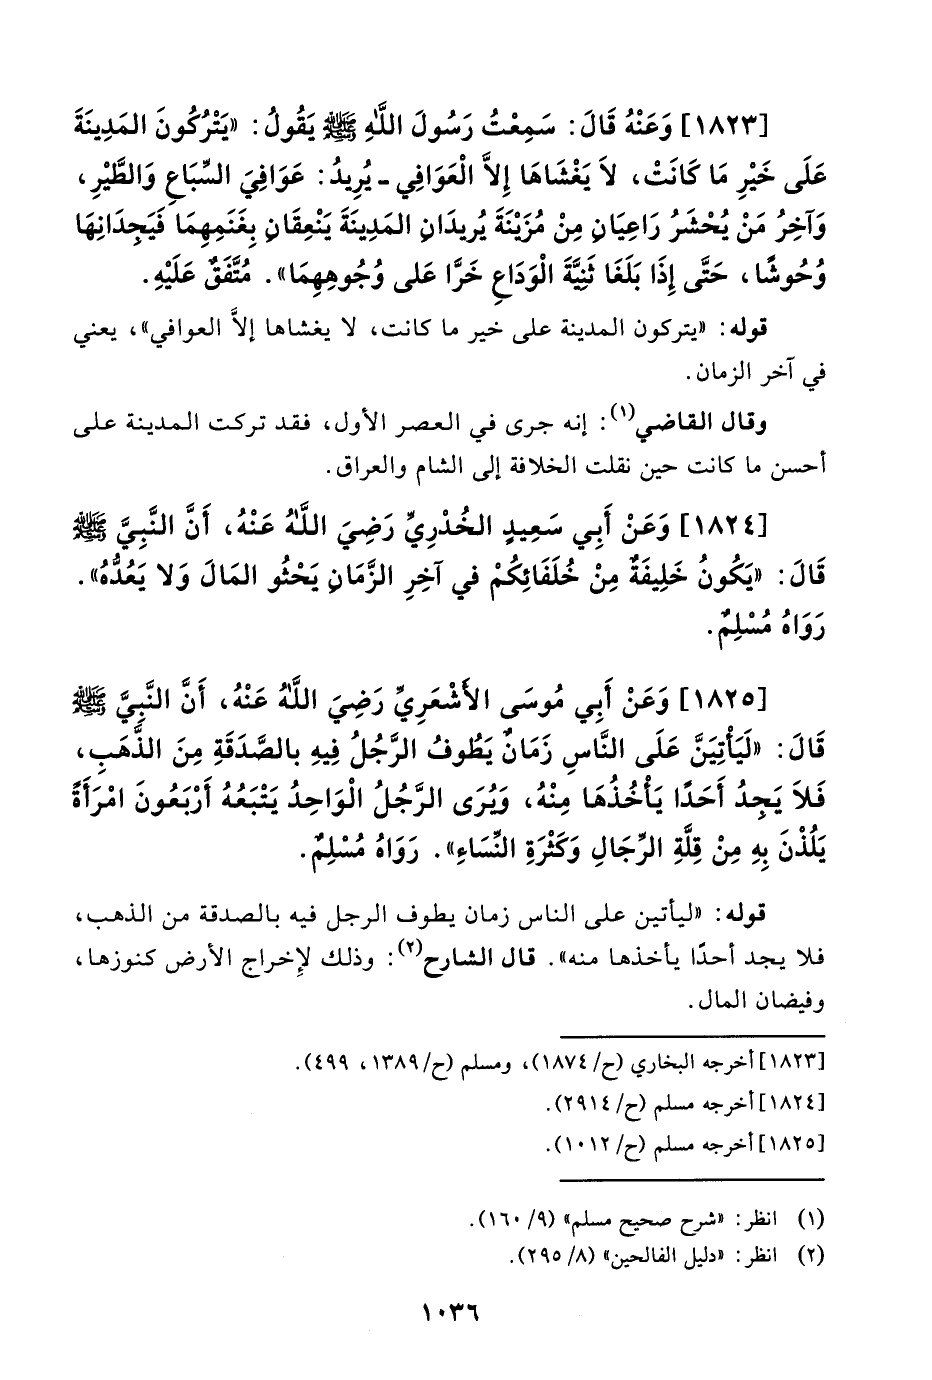 [١٨٢٣] وَعَنْهُ قَالَ: سَمِعْتُ رَسُولَ اللَّهِ ﷺ يَقُولُ: «يَتْرُكُونَ المَدِينَةَ
عَلَى خَيْرِ مَا كَانَتْ، لاَ يَغْشَاهَا إِلاَّ الْعَوَافِي ـ يُرِيدُ: عَوَافِيَ السِّبَاعِ وَالطَّيْرِ،
وَآخِرُ مَنْ يُحْشَرُ رَاعِيَانِ مِنْ مُزَيْنَةَ يُرِيدَانِ المَدِينَةَ يَنْعِقَانِ بِغَنَمِهِمَا فَيَجِدَانِهَا
وُحُوشًا، حَتَّى إِذَا بَلَغَا ثَنِيَّةَ الْوَدَاعِ خَرَّا عَلى وُجُوهِهِمَا». مُتَّفَقٌ عَلَيْهِ.
قوله: «يتركون المدينة على خير ما كانت، لا يغشاها إلاَّ العوافي»، يعني
في آخر الزمان.
وقال القاضي(١): إنه جرى في العصر الأول، فقد تركت المدينة على
أحسن ما كانت حين نقلت الخلافة إلى الشام والعراق.
[١٨٢٤] وَعَنْ أَبِي سَعِيدٍ الخُدْرِيِّ رَضِيَ اللَّهُ عَنْهُ، أَنَّ النَّبِيَّ ﷺ
قَالَ: «يَكُونُ خَلِيفَةٌ مِنْ خُلَفَائِكُمْ في آخِرِ الزَّمَانِ يَحْثُو المَالَ وَلا يَعُدُّهُ».
رَوَاهُ مُسْلِمٌ.
[١٨٢٥] وَعَنْ أَبِي مُوسَى الأَشْعَرِيِّ رَضِيَ اللَّهُ عَنْهُ، أَنَّ النَّبِيَّ ﷺ
قَالَ: «لَيَأْتِيَنَّ عَلَى النَّاسِ زَمَانٌ يَطُوفُ الرَّجُلُ فِيهِ بالصَّدَقَةِ مِنَ الذَّهَبِ،
فَلاَ يَجِدُ أَحَدًا يَأْخُذُهَا مِنْهُ، وَيُرَى الرَّجُلُ الْوَاحِدُ يَتْبَعُهُ أَرْبَعُونَ امْرَأَةً
يَلُذْنَ بِهِ مِنْ قِلَّةِ الرِّجَالِ وَكَثْرَةِ النِّسَاءِ». رَوَاهُ مُسْلِمٌ.
قوله: «ليأتين على الناس زمان يطوف الرجل فيه بالصدقة من الذهب،
فلا يجد أحدًا يأخذها منه». قال الشارح(٢): وذلك لإخراج الأرض كنوزها،
وفيضان المال.
[١٨٢٣] أخرجه البخاري (ح/١٨٧٤)، ومسلم (ح/١٣٨٩، ٤٩٩).
[١٨٢٤] أخرجه مسلم (ح/٢٩١٤).
[١٨٢٥] أخرجه مسلم (ح/١٠١٢).
(١) انظر: «شرح صحيح مسلم» (٩/ ١٦٠).
(٢) انظر: «دليل الفالحين» (٨/ ٢٩٥).
١٠٣٦